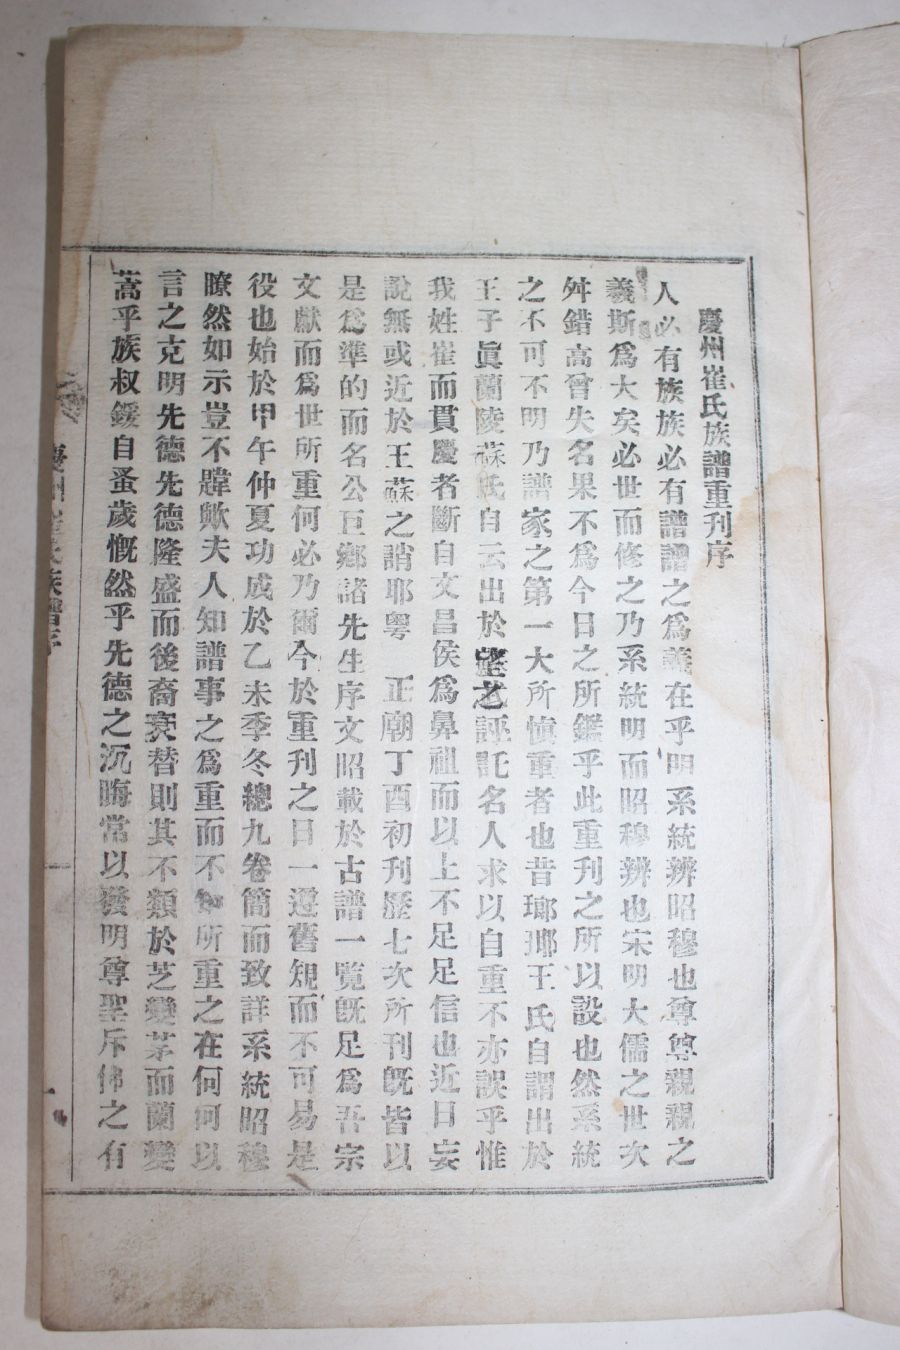 慶州崔氏族譜重刊序
人必有族族必有譜譜之爲義在乎明系統辨昭穆也尊尊親親之
義斯爲大矣必世而修之乃系統明而昭穆辨也宋明大儒之世次
舛錯高曾失名果不爲今日之所鑑乎此重刊之所以設也然系統
之不可不明乃譜家之第一大所愼重者也昔瑯琊王氏自謂出於
王子眞蘭陵蘇氏自云出於望之誣託名人求以自重不亦誤乎惟
我姓崔而貫慶者斷自文昌侯爲鼻祖而以上不足足信也近日妄
說無或近於王蘇之誚耶粤 正廟丁酉初刊歷七次所刊旣皆以
是爲準的而名公巨鄕諸先生序文昭載於古譜一覽旣足爲吾宗
文獻而爲世所重何必乃爾今於重刊之日一遵舊規而不可易是
役也始於甲午仲夏功成於乙未季冬總九卷簡而致詳系統昭穆
瞭然如示豈不韙歟夫人知譜事之爲重而不知所重之在何何以
言之克明先德先德隆盛而後裔衰替則其不類於芝變茅而蘭變
蒿乎族叔鍰自蚤歲慨然乎先德之沉晦常以發明尊聖斥佛之有
慶州崔氏族譜序
一